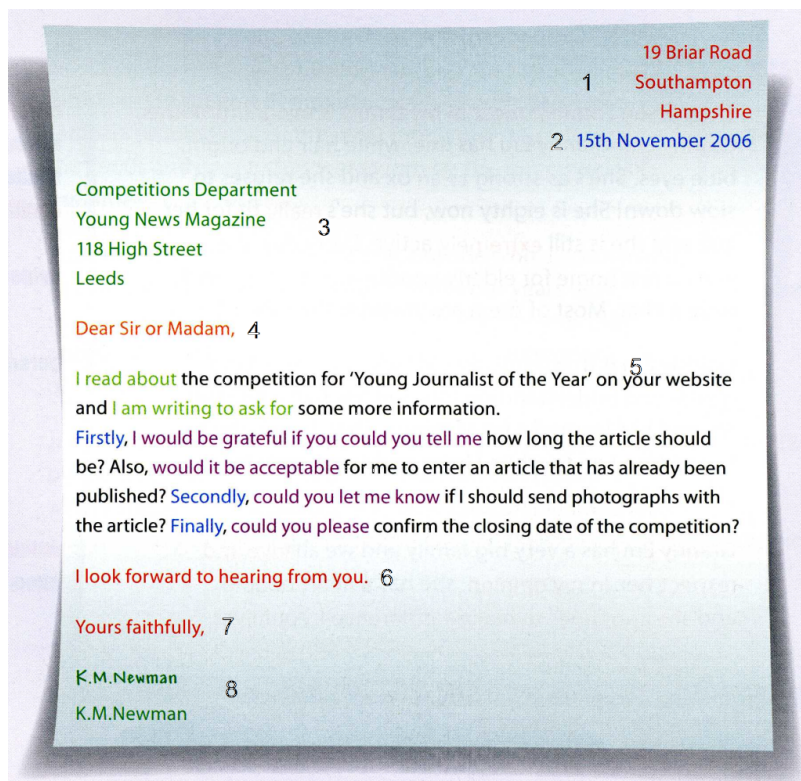 19 Briar Road
1 Southampton
Hampshire
2 15th November 2006
Competitions Department
Young News Magazine
3
118 High Street
Leeds
Dear Sir or Madam, 4
5
I read about the competition for ‘Young Journalist of the Year’ on your website
and I am writing to ask for some more information.
Firstly, I would be grateful if you could you tell me how long the article should
be? Also, would it be acceptable for me to enter an article that has already been
published? Secondly, could you let me know if I should send photographs with
the article? Finally, could you please confirm the closing date of the competition?
I look forward to hearing from you. 6
Yours faithfully, 7
K.M.Newman
8
K.M.Newman